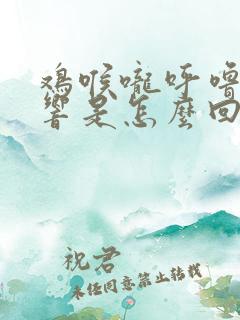 鸡喉咙呼噜
响是怎麽回
祝君
未经同意禁止转载